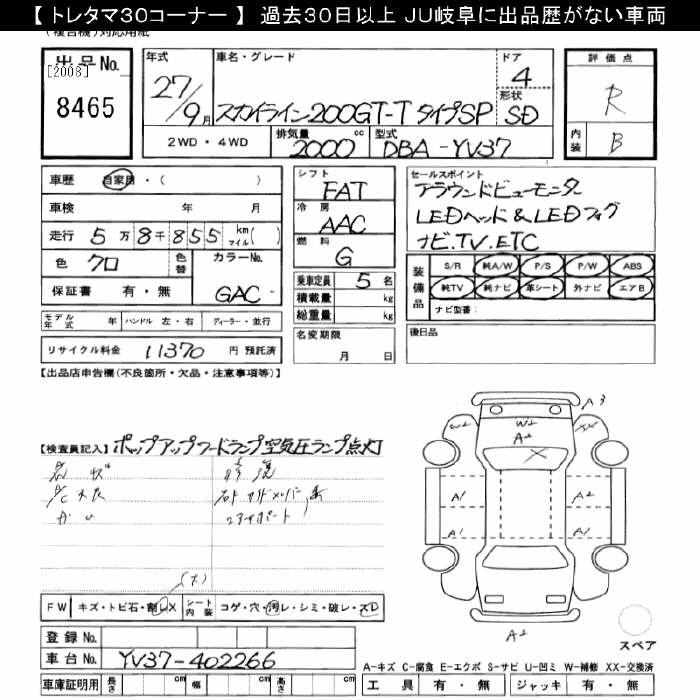 【 トレタマ30コーナー 】 過去30日以上 JU岐阜に出品歴がない車両
(複合機)対応用紙
出品No.
[2008]
8465
年式
27/9月
車名・グレード
スカイライン200GT-T タイプSP
ドア
4
形状
SD
評価点
R
内装
B
2WD・4WD
排気量
2000 cc
型式
DBA-YV37
車歴 自家用・( )
車検 年 月
走行 5万8千855 km マイル( )
色 クロ 色替 カラーNo. GAC-
保証書 有・無
モデル年式 年 ハンドル 左・右 ディーラー・並行
リサイクル料金 11370 円 預託済
シフト
FAT
冷房
AAC
燃料
G
乗車定員 5 名
積載量 kg
総重量 kg
名変期限
月 日
セールスポイント
アラウンドビューモニター
LEDヘッド&LEDフォグ
ナビ.TV.ETC
装備品
S/R 純A/W P/S P/W ABS
純TV 純ナビ 革シート 外ナビ エアB
ナビ型番:
後日品
【出品店申告欄(不良箇所・欠品・注意事項等)】
【検査員記入】 ポップアップフードランプ空気圧ランプ点灯
A3
W2
W2
A2
X
A1
A2
A1
A1
A2
(大)
FW キズ・トビ石・割レX シート内装 コゲ・穴・汚レ・シミ・破レ・スレ
登録No.
車台No. YV37-402266
車庫証明用 長さ cm 幅 cm 高さ cm
スペア
A-キズ C-腐食 E-エクボ S-サビ U-凹ミ W-補修 XX-交換済
工具 有・無 ジャッキ 有・無